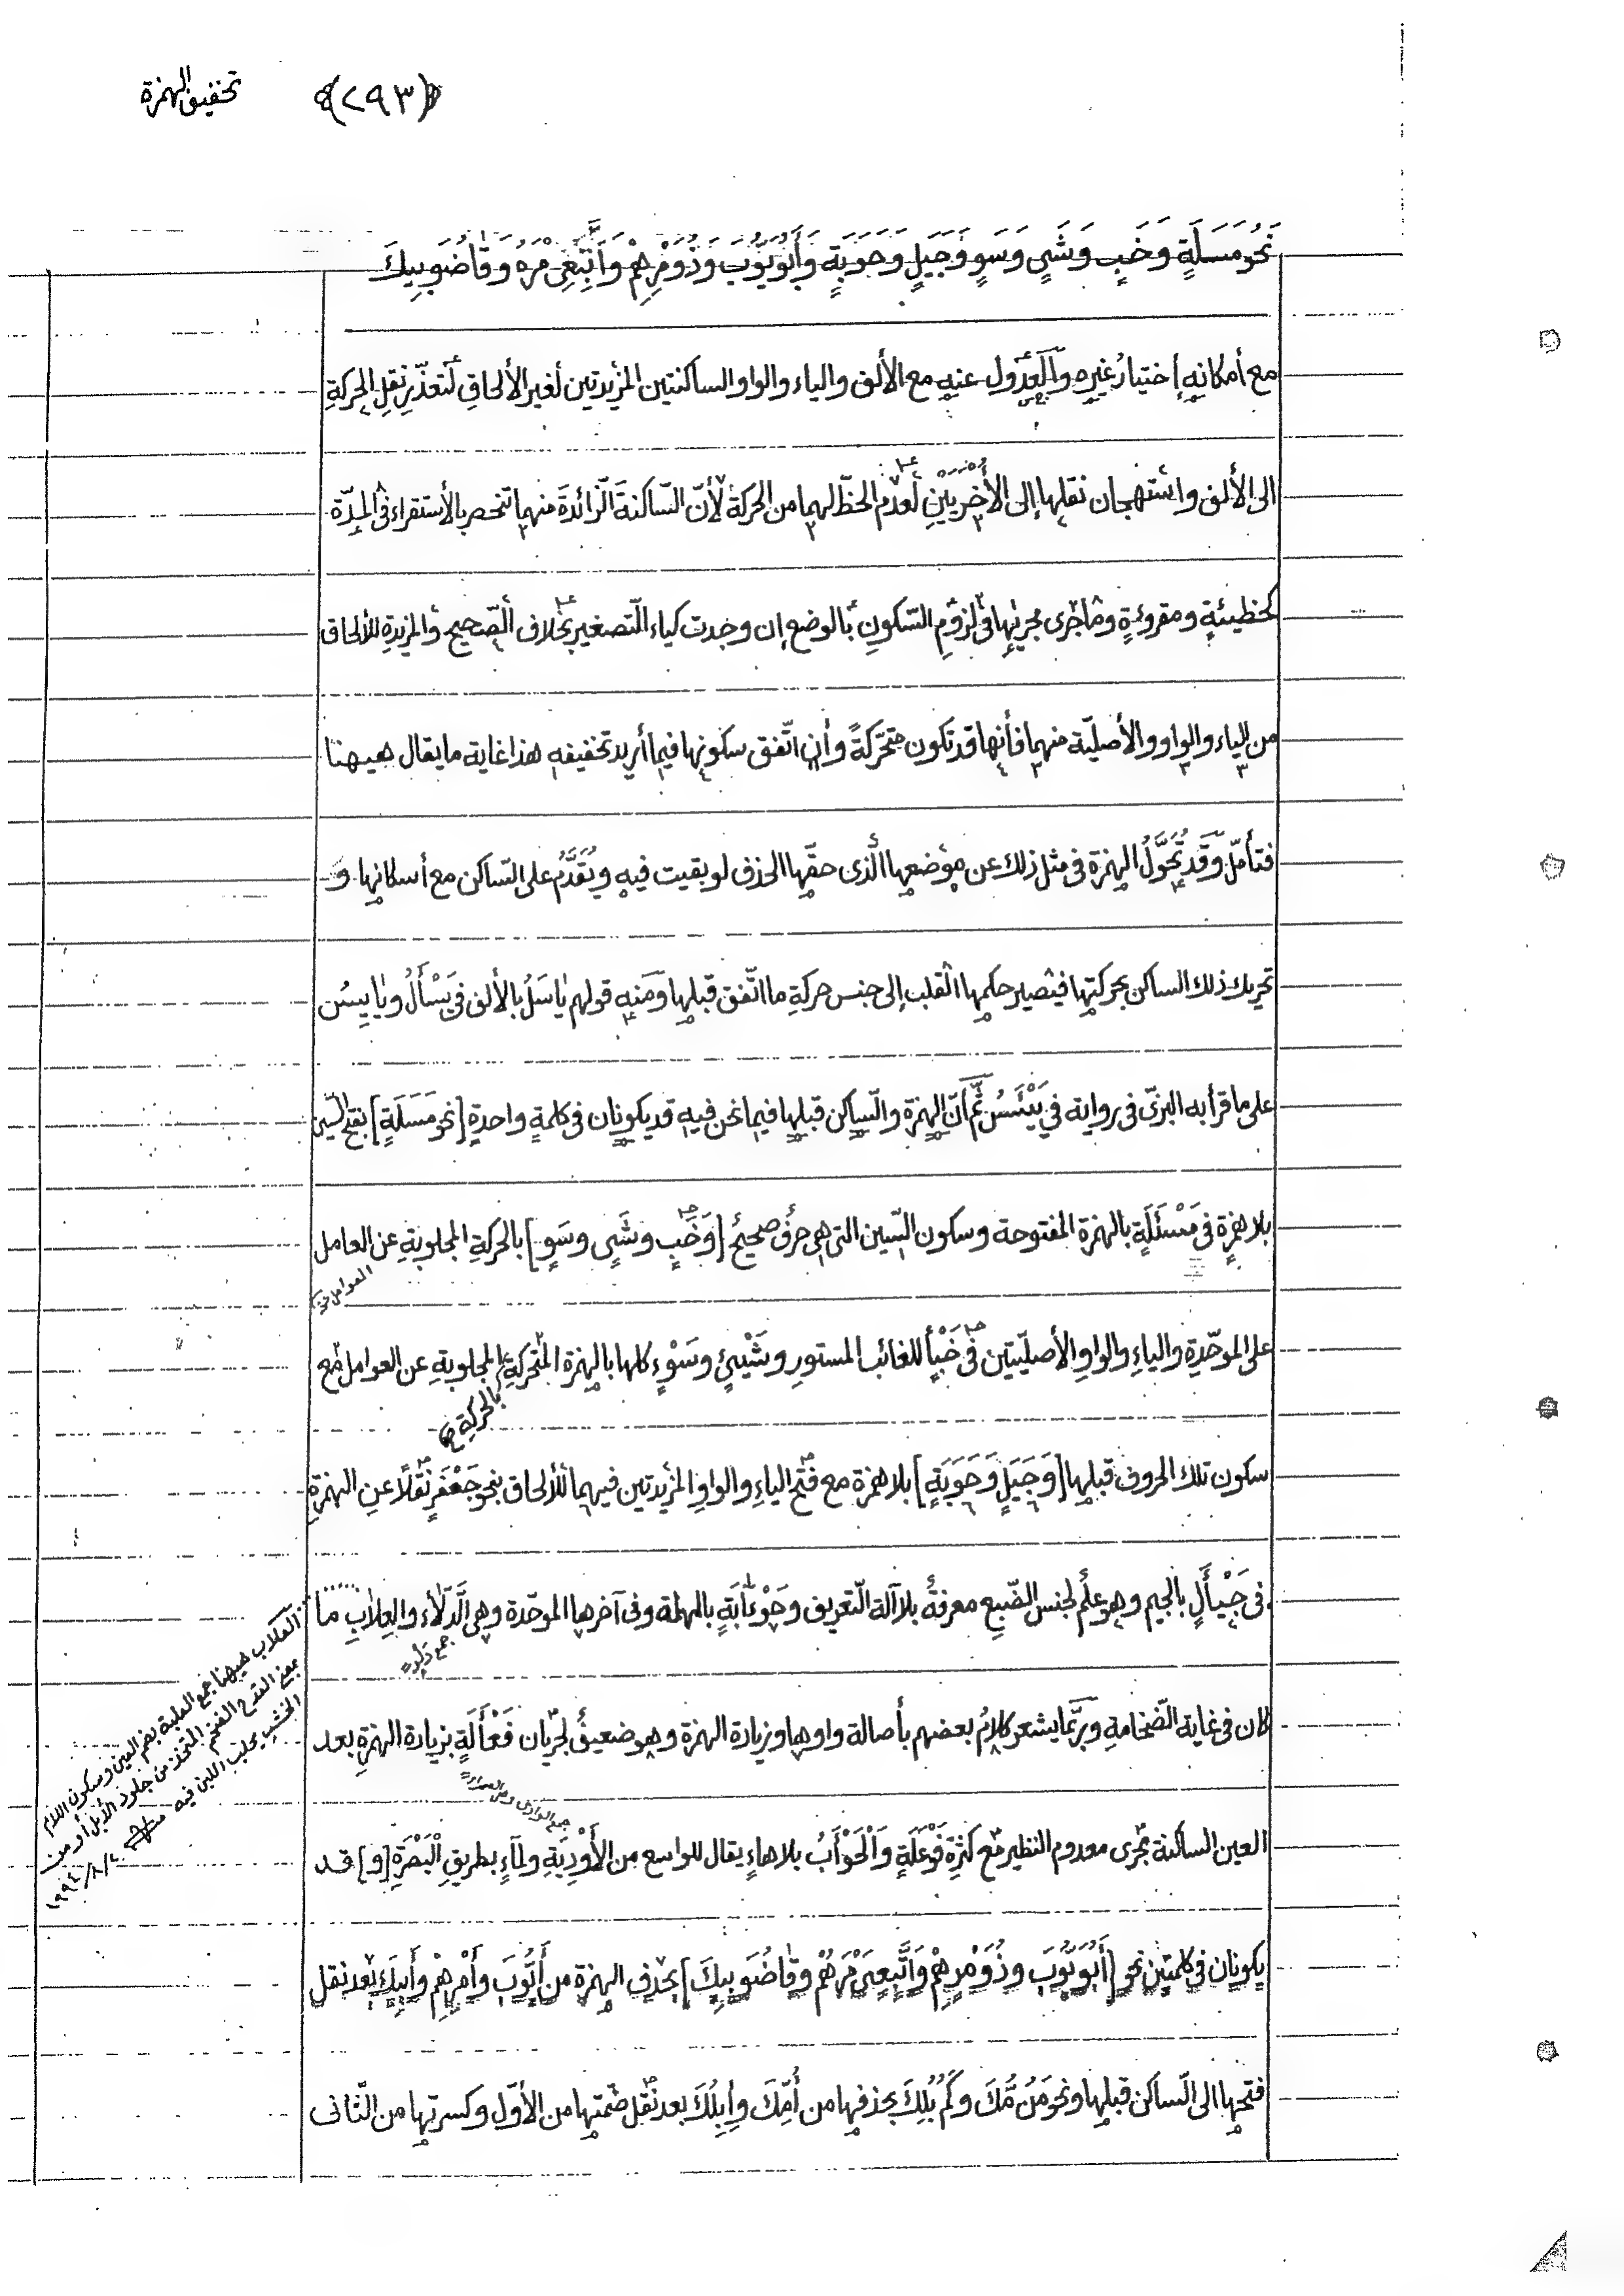 تخفيف الهمزة
(٢٩٣)
نَحْوُ مَسَلَةٍ وَخَبٍ وَشَىٍ وَسَوٍ وَجَيَلٍ وَحَوَبَةٍ وَأَبُوَيُّوبَ وَذُوَمْرِهِمْ وَاتَّبِعِىَ مْرَهُ وَقَاضُوَبِيكَ
مع أمكانهِ إختيارُ غيرِه والعدول عنهِ مع الألف والياء والواو الساكنتين المزيدتين لغير الألحاقِ لتعذّرِ نقلِ الحركةِ
الى الألف واستهجان نقلها إلى الأخريَيْنِ لعدم الحظّ لهما من الحركة لأنّ السّاكنةَ الزّائدةَ منهما تنحصر بالأستقراء فى المدّة
كخطيئةٍ ومقروءةٍ وما جرى مجريها فى لزومِ السّكونِ بالوضع إن وجدت كياء التّصغير بخلاف الصّحيح والمزيدةِ للألحاق
من الياء والواو والأصليّة منهما فأنها قد تكون متحرّكةً وأن اتّفق سكونها فيما أريد تخفيفه هذا غاية ما يقال هيهنا
فتأمّل وَقَدْ تُحَوَّلُ الهمزة فى مثل ذلك عن موضعها الّذى حقّها الحذف لو بقيت فيه وتُقَدَّمُ على السّاكن مع أسكانها وَ
تحريك ذلك الساكن بحركتها فيصير حكمها القلب إلى جنس حركةِ ما اتّفق قبلها ومنه قولهم يٰاسَلُ بالألف فى يَسْأَلُ ويٰايِسُ
على ما قرأ به البزىّ فى رواية في يَيْئَسُ ثمّ أنّ الهمزة والسّاكن قبلها فيما نحن فيه قد يكونان فى كلمةٍ واحدةٍ [نحو مَسَلَةٍ] بفتح السّين
بلا همزةٍ فى مَسْئَلَةٍ بالهمزة المفتوحة وسكون السّين التى هى حرفٌ صحيحٌ [وَخَبٍ وشَىٍ وسَوٍ] بالحركةِ المجلوبةِ عن العامل
العوامل
على الموحّدةِ والياءِ والواوِ الأصليّتين فى خَبْأٍ للغائب المستورِ وشَيْئٍ وسَوْءٍ كلها بالهمزة المتحركةِ المجلوبةِ عن العوامل مع
بالحركةِ
سكون تلك الحروف قبلها [وَجَيَلٍ وَحَوَبَةٍ] بلا همزة مع فتح الياءِ والواوِ المزيدتين فيهما للألحاق بنحو جَعْفَرٍ نقلاً عن الهمزةِ
فى جَيْأَلٍ بالجيم وهو علمٌ لجنس الضّبع معرفةً بلا آلة التّعريف وحَوْءَبَةٍ بالمهملة وفى آخرها الموحّدة وهى الدّلاء والعِلابِ ما
جمع دلو
كان فى غاية الضّخامةِ وربّما يشعر كلامُ بعضهم بأصالة واوها وزيادة الهمزة وهو ضعيفٌ لجريان فَعْأَلَةٍ بزيادة الهمزةِ بعد
العين الساكنة مجرى معدوم النظير مع كثرة فَوْعَلَةٍ وَالْحَوْأَبُ بلا هاءٍ يقال للواسع من الأوْدِيَةِ ولماءٍ بطريقِ الْبَصْرَةِ [و] قد
يكونان في كلمتين نحو [أَبُوَيُّوبَ وذُوَمْرِهِمْ وَاتَّبِعِىَ مْرَهُمْ وقٰاضُوَبِيكَ] بحذف الهمزة من أَيُّوبَ وأَمْرِهِمْ وأَبِيكَ بعد نقل
فتحها الى السّاكن قبلها ونحو مَنُ مُّكَ وكَمِ بِلُكَ بحذفها من أُمِّكَ وإِبِلُكَ بعد نقل ضمّتها من الأوّل وكسرتها من الثّانى
العلاب هيهنا جمع العلبة بضم العين وسكون اللام
بمعنى القدح الضخم المتخذ من جلود الأبل أو من
الخشب يحلب اللبن فيه